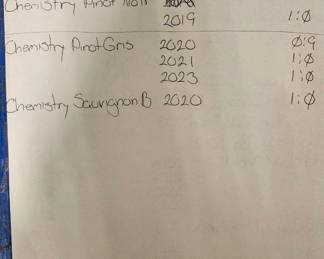 Chemistry Pinot Noir
2019 1:∅
Chemistry Pinot Gris 2020 ∅:9
2021 1:∅
2023 1:∅
Chemistry Sauvignon B 2020 1:∅